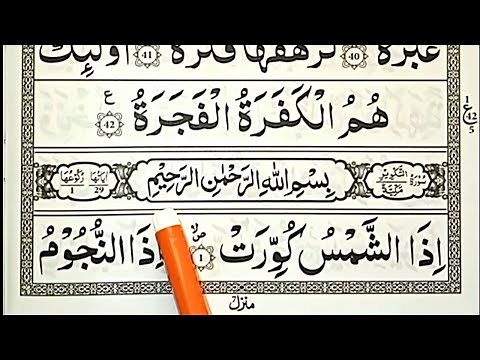 غَبَرَةٌ ﴿40﴾ تَرْهَقُهَا قَتَرَةٌ ﴿41﴾ اُولٰٓئِكَ
هُمُ الْكَفَرَةُ الْفَجَرَةُ ﴿42﴾ ع
سُوْرَةُ التَّكْوِيْرِ مَكِّيَّةٌ بِسْمِ اللّٰهِ الرَّحْمٰنِ الرَّحِيْمِ اٰيَاتُهَا 29 رُكُوْعُهَا 1
اِذَا الشَّمْسُ كُوِّرَتْ ﴿1﴾ وَاِذَا النُّجُوْمُ
منزل
1
ع 42
5